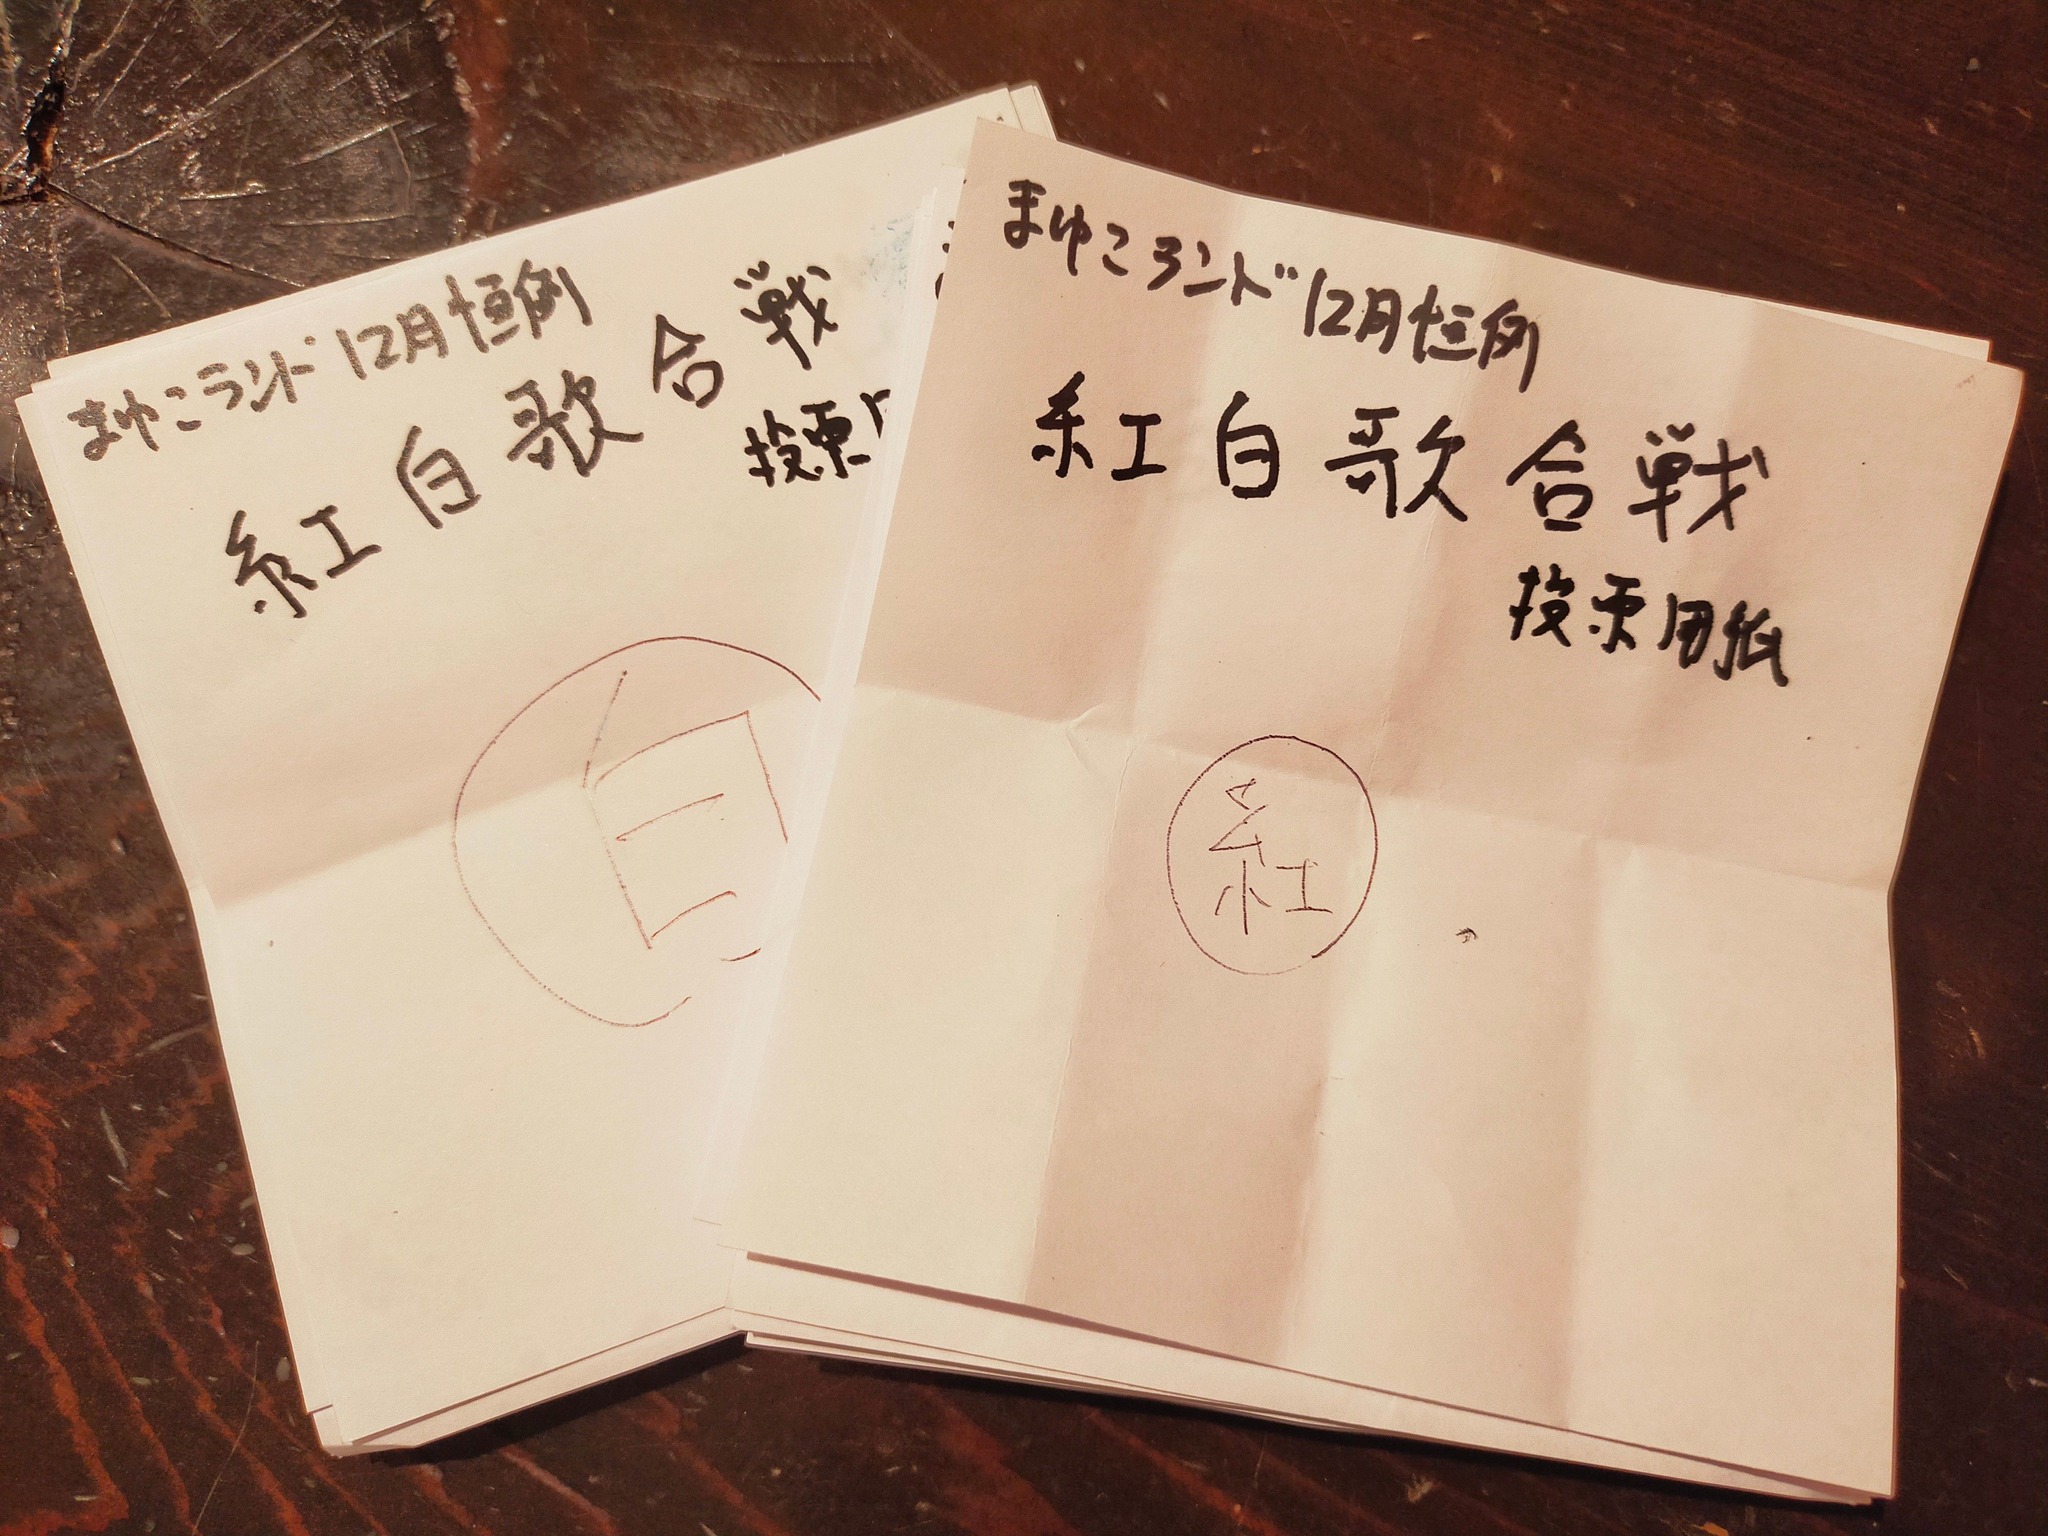 まゆこランド12月恒例
紅白歌合戦
投票用
白
まゆこランド12月恒例
紅白歌合戦
投票用紙
紅